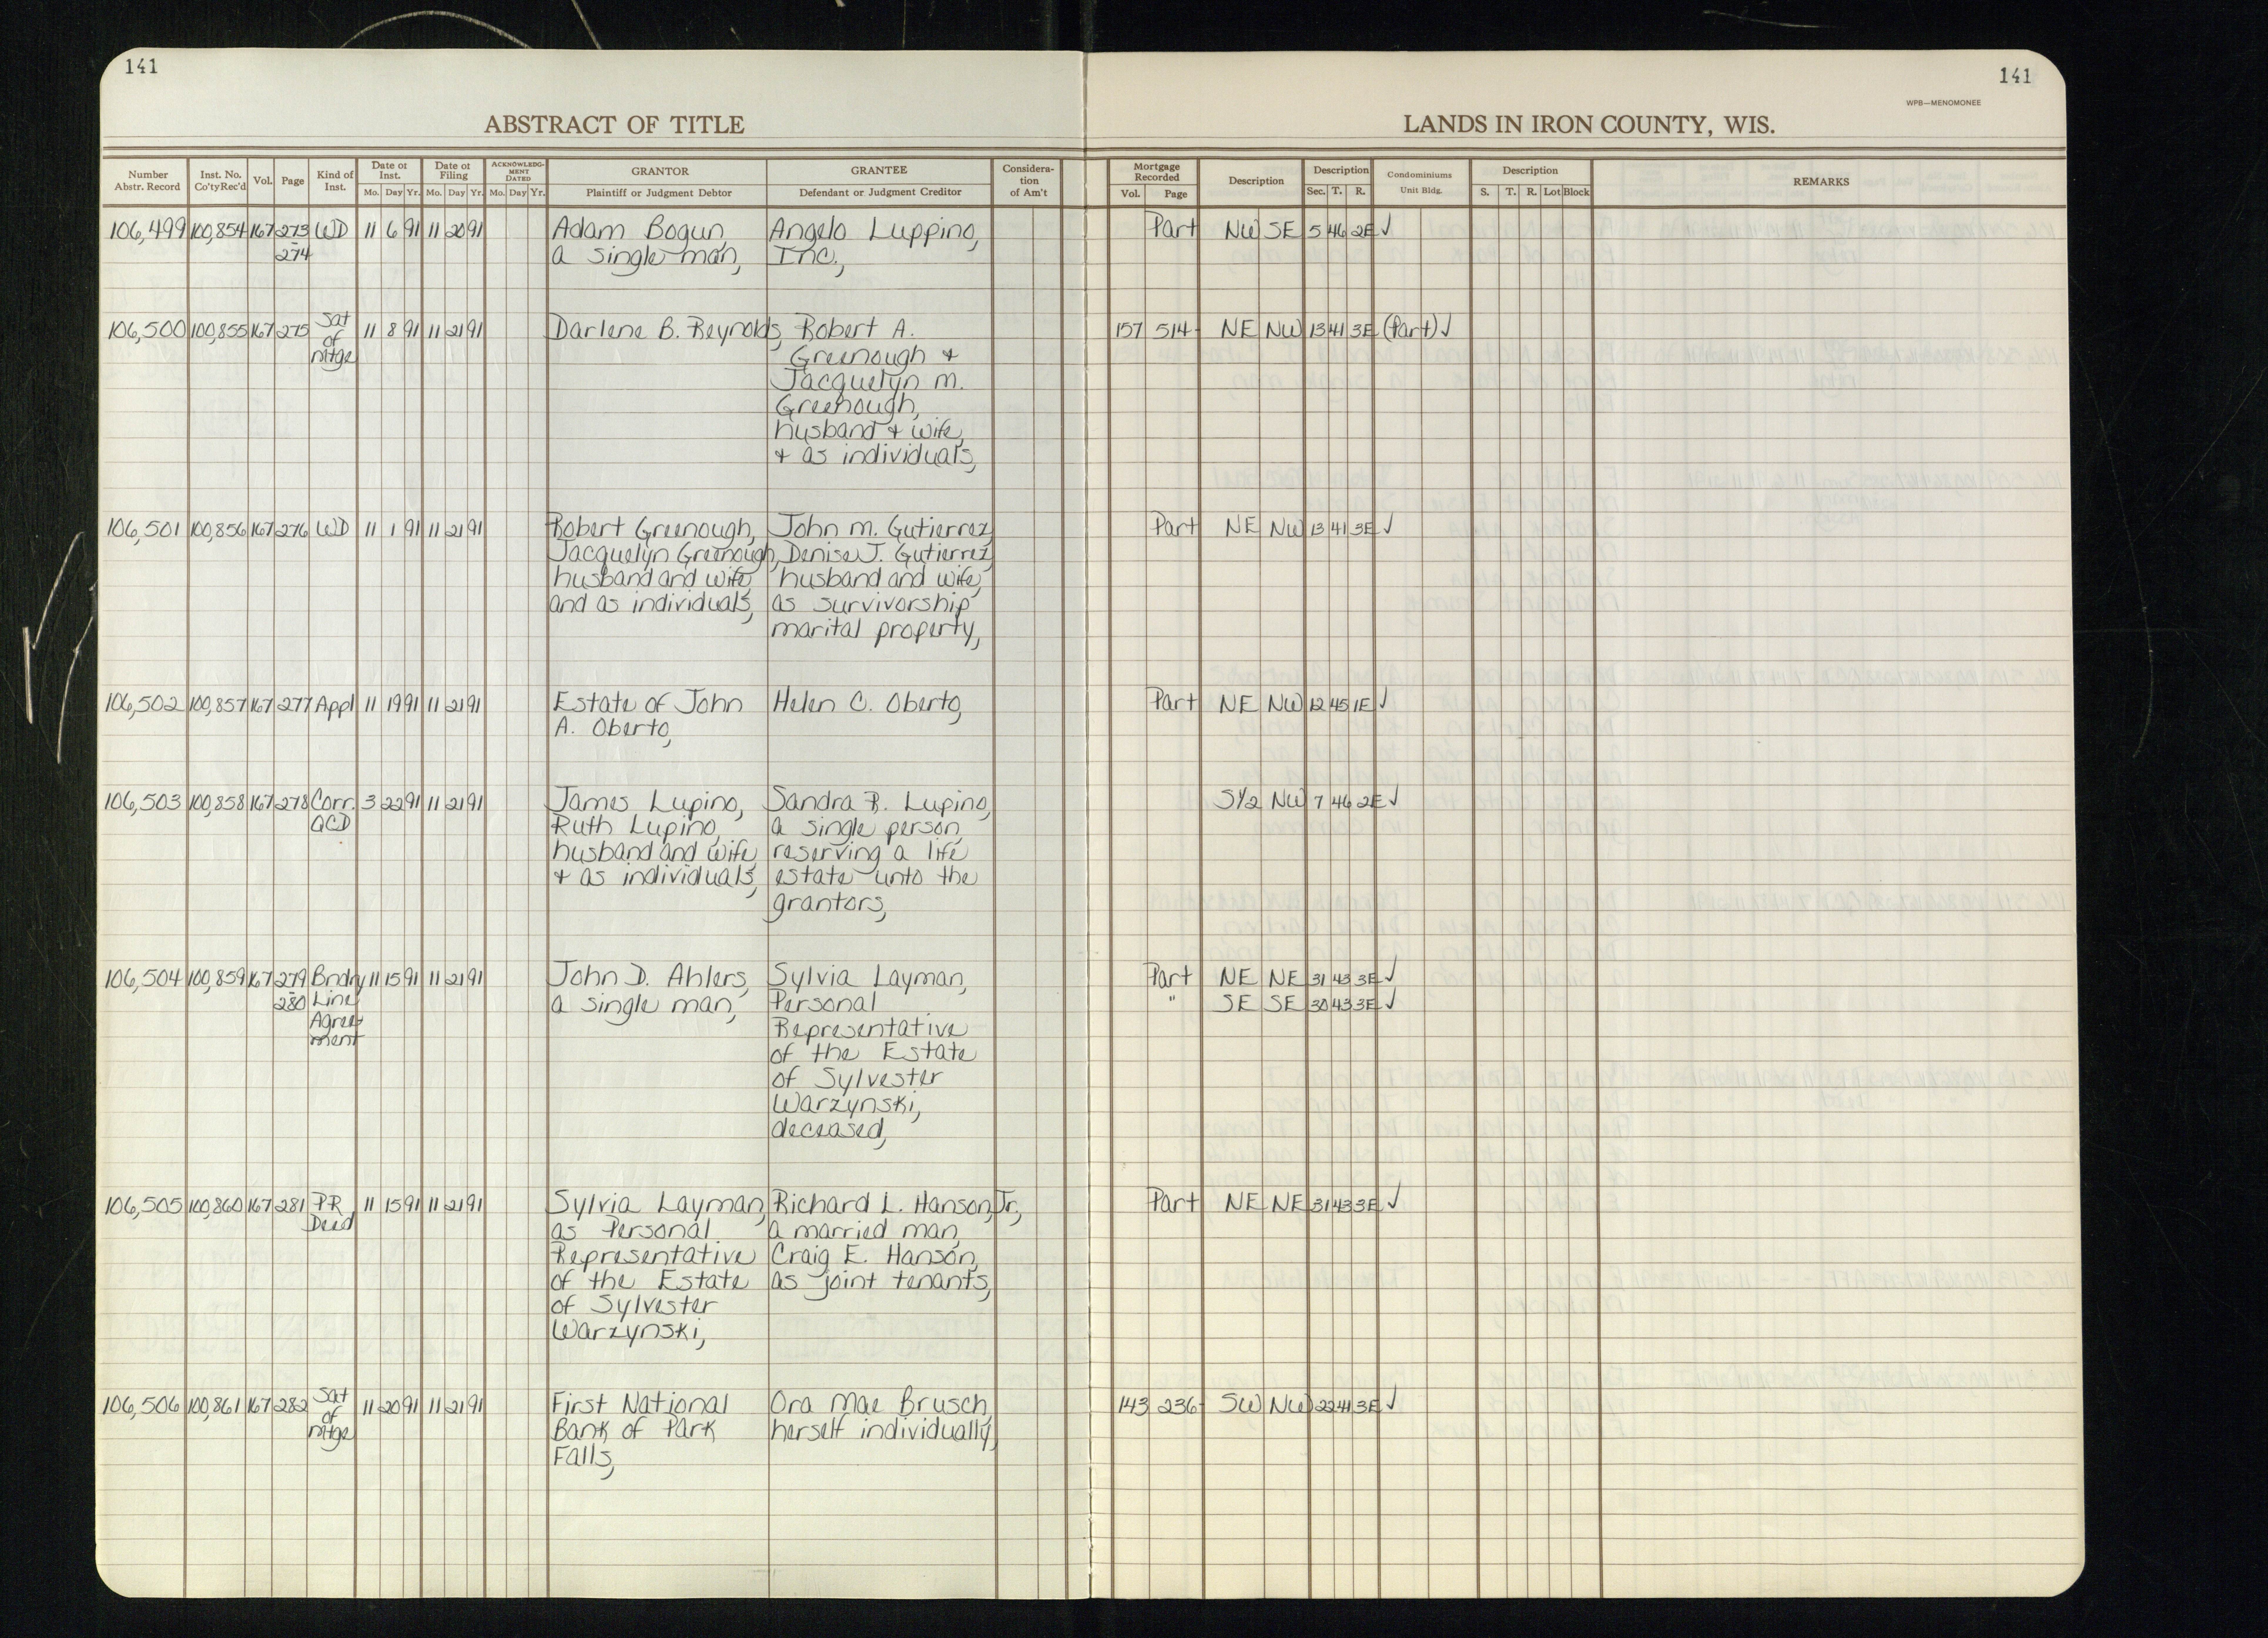 141
141
WPB—MENOMONEE
ABSTRACT OF TITLE
LANDS IN IRON COUNTY, WIS.
Number Abstr. Record | Inst. No. Co'ty Rec'd | Vol. | Page | Kind of Inst. | Date of Inst. Mo. Day Yr. | Date of Filing Mo. Day Yr. | ACKNOWLEDGMENT DATED Mo. Day Yr. | GRANTOR Plaintiff or Judgment Debtor | GRANTEE Defendant or Judgment Creditor | Consideration of Am't | Mortgage Recorded Vol. Page | Description | Description Sec. T. R. | Condominiums Unit Bldg. | Description S. T. R. Lot Block | REMARKS
106,499 100,854 167 273 WD 11 6 91 11 20 91 Adam Bogun, Angelo Luppino, Part NW SE 5 46 2E ✓
274 a single man, Inc.,
106,500 100,855 167 275 Sat 11 8 91 11 21 91 Darlene B. Reynolds, Robert A. 157 514 NE NW 13 41 3E (Part) ✓
of Greenough +
mtge Jacquelyn M.
Greenough,
husband + wife,
+ as individuals,
106,501 100,856 167 276 WD 11 1 91 11 21 91 Robert Greenough, John M. Gutierrez, Part NE NW 13 41 3E ✓
Jacquelyn Greenough, Denise J. Gutierrez,
husband and wife, husband and wife,
and as individuals, as survivorship
marital property,
106,502 100,857 167 277 Appl 11 19 91 11 21 91 Estate of John Helen C. Oberto, Part NE NW 12 45 1E ✓
A. Oberto,
106,503 100,858 167 278 Corr. 3 22 91 11 21 91 James Lupino, Sandra R. Lupino, S1/2 NW 7 46 2E ✓
QCD Ruth Lupino, a single person,
husband and wife, reserving a life
+ as individuals, estate unto the
grantors,
106,504 100,859 167 279 Bndry 11 15 91 11 21 91 John D. Ahlers, Sylvia Layman, Part NE NE 31 43 3E ✓
280 Line a single man, Personal " SE SE 30 43 3E ✓
Agree- Representative
ment of the Estate
of Sylvester
Warzynski,
deceased,
106,505 100,860 167 281 PR 11 15 91 11 21 91 Sylvia Layman, Richard L. Hanson, Jr., Part NE NE 31 43 3E ✓
Deed as Personal a married man,
Representative Craig E. Hanson,
of the Estate as joint tenants,
of Sylvester
Warzynski,
106,506 100,861 167 282 Sat 11 20 91 11 21 91 First National Ora Mae Brusch, 143 236 SW NW 22 41 3E ✓
of Bank of Park herself individually,
mtge Falls,